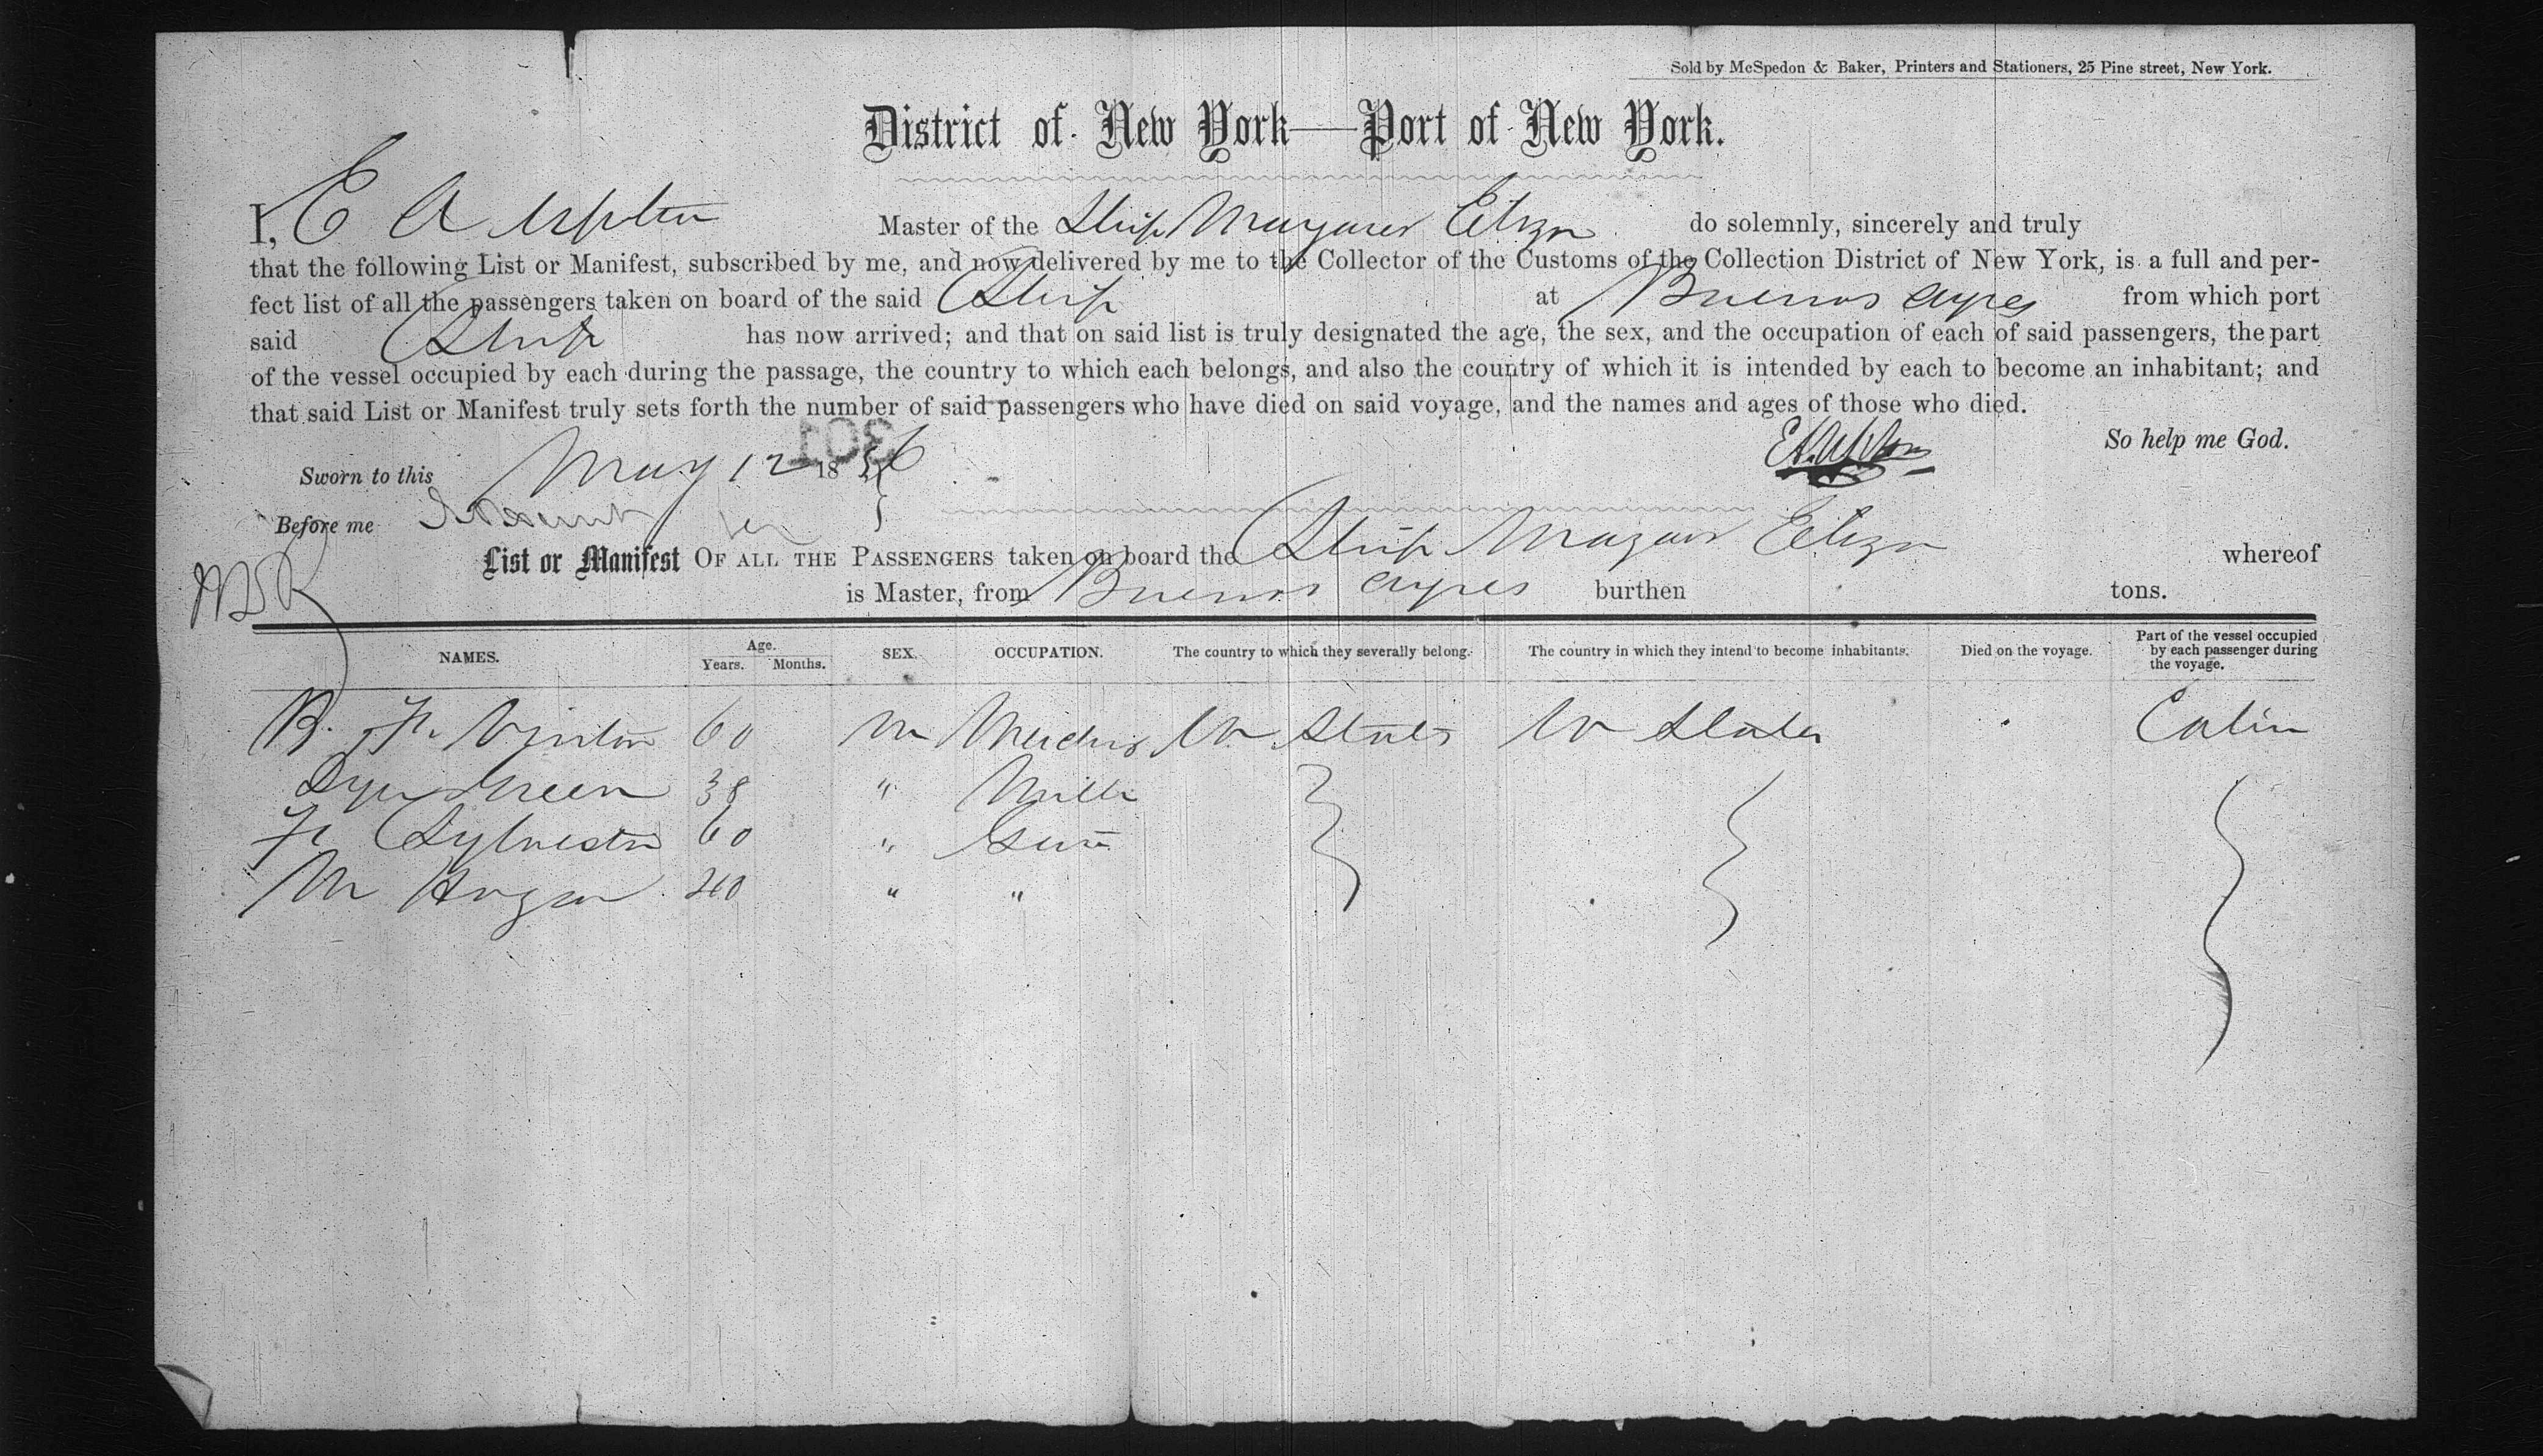 Sold by McSpedon & Baker, Printers and Stationers, 25 Pine street, New York.
District of New York—Port of New York.
I, E A Upton Master of the Ship Margaret Eliza do solemnly, sincerely and truly
that the following List or Manifest, subscribed by me, and now delivered by me to the Collector of the Customs of the Collection District of New York, is a full and per-
fect list of all the passengers taken on board of the said Ship at Buenos Ayres from which port
said Ship has now arrived; and that on said list is truly designated the age, the sex, and the occupation of each of said passengers, the part
of the vessel occupied by each during the passage, the country to which each belongs, and also the country of which it is intended by each to become an inhabitant; and
that said List or Manifest truly sets forth the number of said passengers who have died on said voyage, and the names and ages of those who died.
301
So help me God.
Sworn to this May 12 1856 E. A. Upton
Before me
List or Manifest OF ALL THE PASSENGERS taken on board the Ship Margaret Eliza whereof
is Master, from Buenos Ayres burthen tons.
NAMES. Age. Years. Months. SEX. OCCUPATION. The country to which they severally belong. The country in which they intend to become inhabitants. Died on the voyage. Part of the vessel occupied by each passenger during the voyage.
B. F. Vinton 60 M U States U States Cabin
Green 38 "
Sylvester 60 " "
M Hogan 40 " "